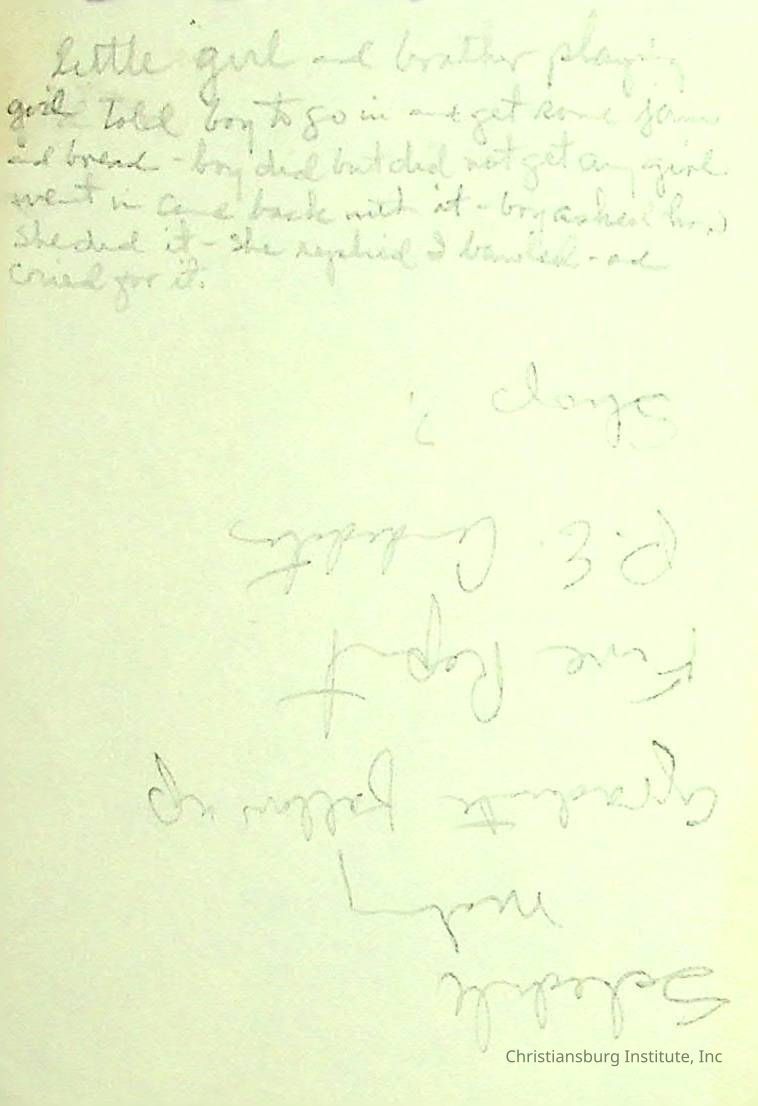 little girl and brother playing
girl told boy to go in and get some jam
and bread - boy did but did not get any girl
went in came back with it - boy asked how
She did it - She replied I bawled - and
cried for it.
Schedule
Graduate follow up
Fire Report
P.E. Credits
Shop ?
Christiansburg Institute, Inc